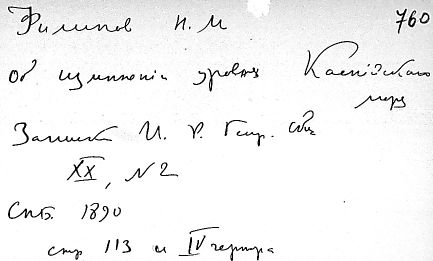 Филипов Н. М 760
Об изменении уровня Каспийского
моря
Записки И. Р. Геогр. Общ
XX, N 2
Спб. 1890
стр 113 и IV чертежа